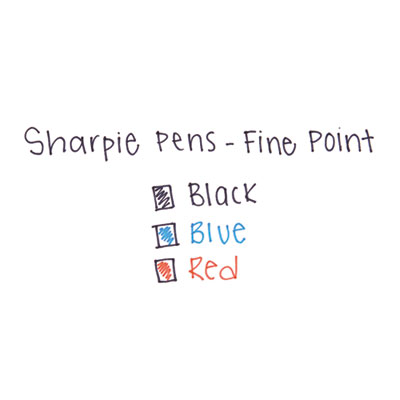 Sharpie Pens - Fine Point
Black
Blue
Red